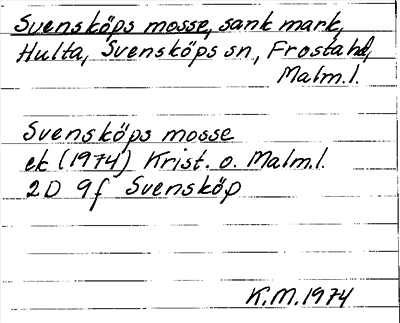 Svensköps mosse, sank mark,
Hulta, Svensköps sn, Frosta hd,
Malm.l.
Svensköps mosse
ek (1974) Krist. o. Malm.l.
2D 9f Svensköp
K.M. 1974